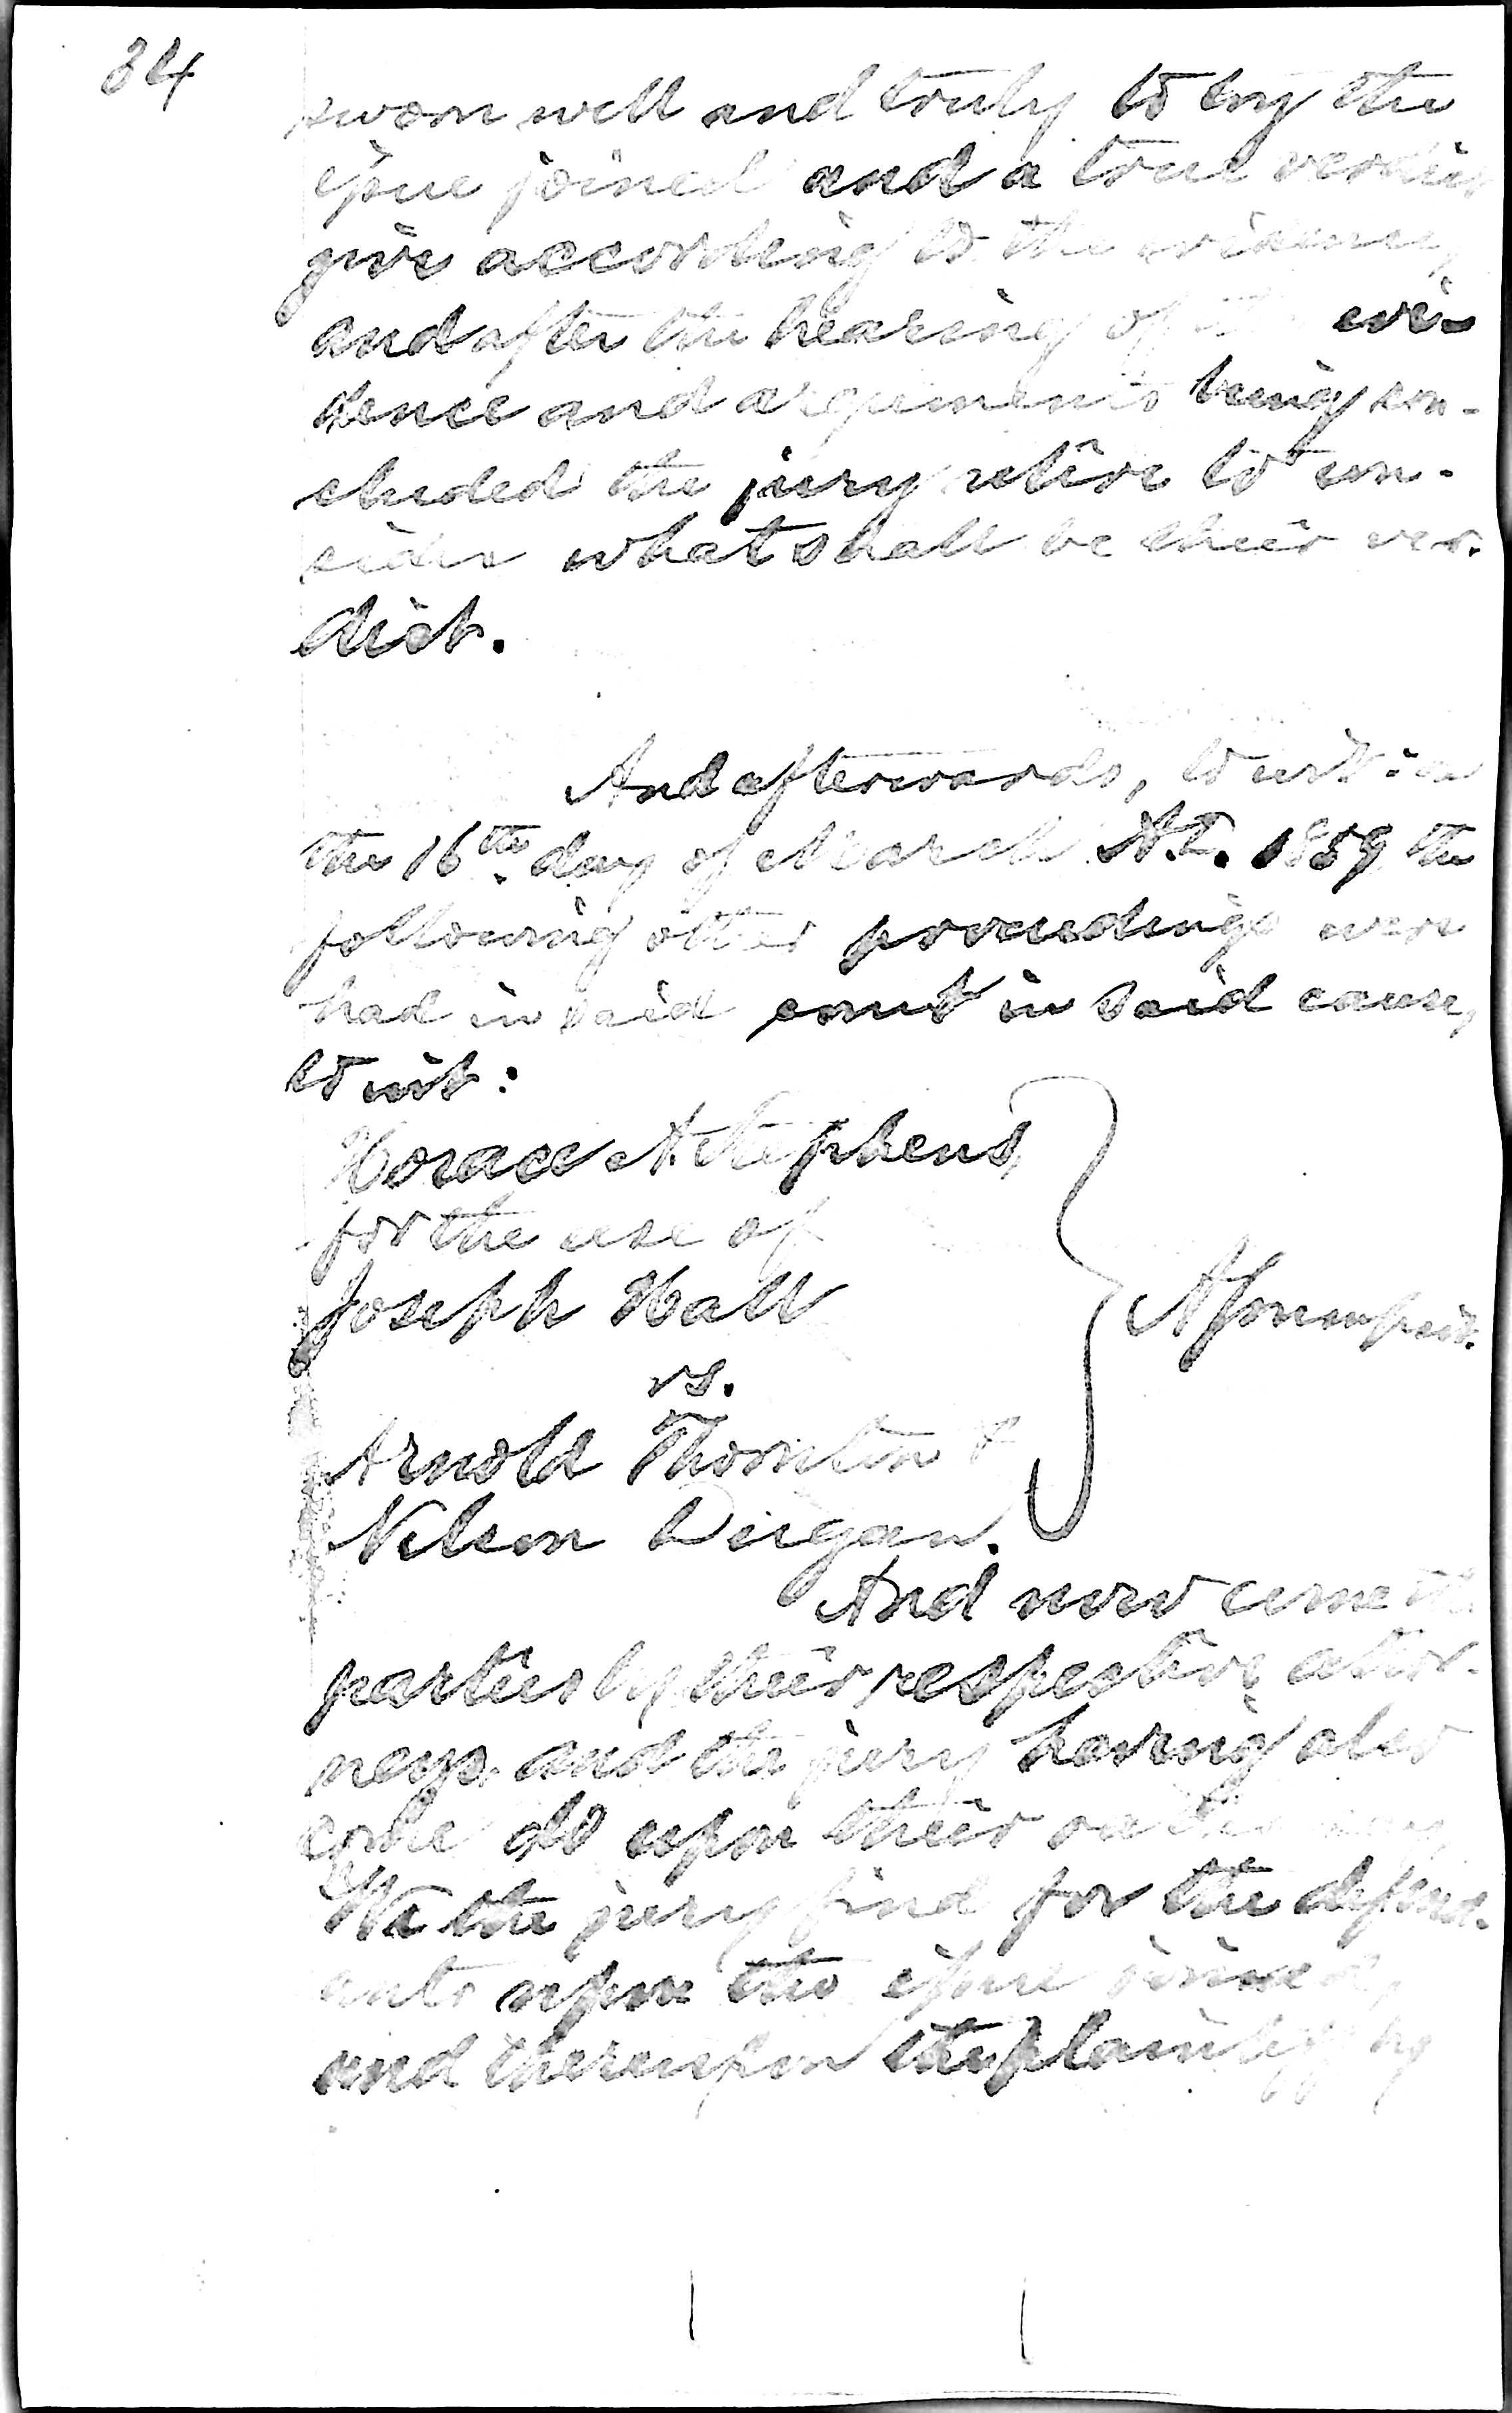 34
sworn well and truly to try the
issue joined and a true verdict
give according to the evidence,
and after the hearing of the evi-
dence and arguments being con-
cluded the jury retire to con-
sider what shall be their ver-
dict.
And afterwards, to wit: on
the 16th day of March A.D. 1859 the
following other proceedings were
had in said court in said cause,
to wit:
Horace A Stephens,
for the use of
Joseph Hall
vs.
Arnold Thornton &
Nelson Dugan.
Assumpsit.
And now come the
parties by their respective attor-
neys and the jury having also
come do upon their oaths say
We the jury find for the defend-
ants upon the issue joined,
and thereupon the plaintiff by